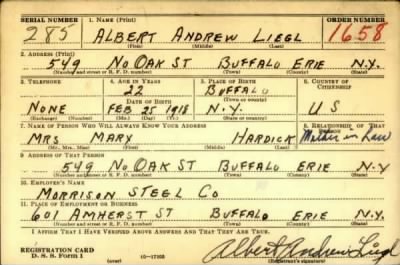 SERIAL NUMBER 1. NAME (Print) ORDER NUMBER
285 ALBERT ANDREW LIEGL 1658
(First) (Middle) (Last)
2. ADDRESS (Print)
549 NO OAK ST BUFFALO ERIE N.Y.
(Number and street or R. F. D. number) (Town) (County) (State)
3. TELEPHONE 4. AGE IN YEARS 5. PLACE OF BIRTH 6. COUNTRY OF CITIZENSHIP
22 BUFFALO
DATE OF BIRTH (Town or county)
NONE FEB 25 1918 N.Y. U S
(Exchange) (Number) (Mo.) (Day) (Yr.) (State or country)
7. NAME OF PERSON WHO WILL ALWAYS KNOW YOUR ADDRESS 8. RELATIONSHIP OF THAT PERSON
MRS MARY HARDICK Mother in Law
(Mr., Mrs., Miss) (First) (Middle) (Last)
9. ADDRESS OF THAT PERSON
549 NO OAK ST BUFFALO ERIE N.Y
(Number and street or R. F. D. number) (Town) (County) (State)
10. EMPLOYER'S NAME
MORRISON STEEL CO
11. PLACE OF EMPLOYMENT OR BUSINESS
601 AMHERST ST BUFFALO ERIE N.Y
(Number and street or R. F. D. number) (Town) (County) (State)
I AFFIRM THAT I HAVE VERIFIED ABOVE ANSWERS AND THAT THEY ARE TRUE.
REGISTRATION CARD Albert Andrew Liegl
D. S. S. Form 1 (over) (Registrant's signature)